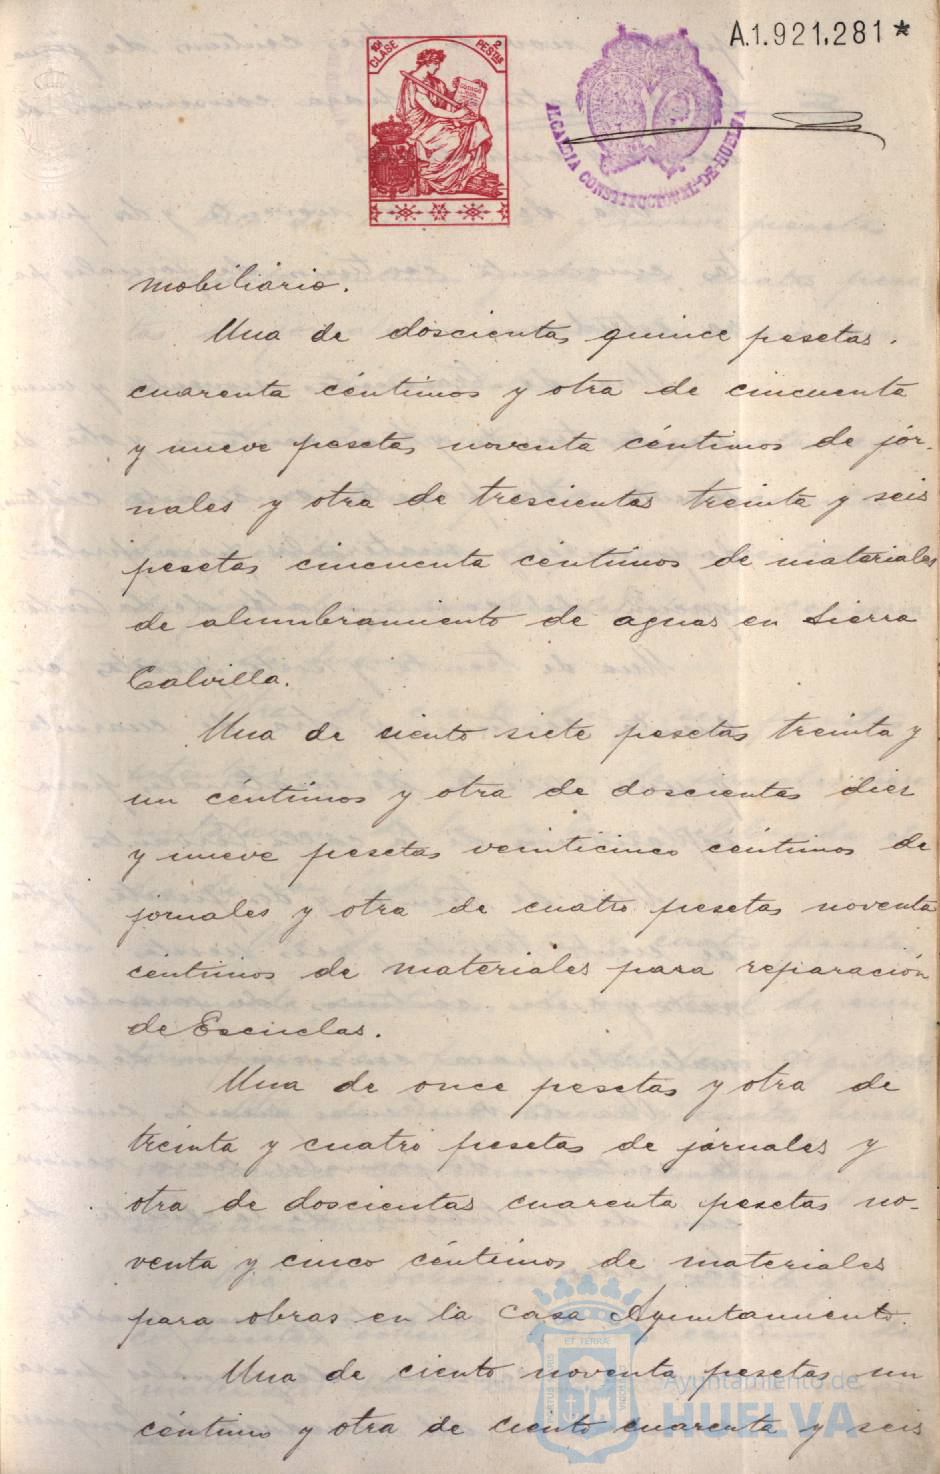 10ª CLASE 2 PESETAS
A.1.921.281*
ALCALDIA CONSTITUCIONAL DE HUELVA
mobiliario.
Una de doscientas quince pesetas.
cuarenta céntimos y otra de cincuenta
y nueve pesetas noventa céntimos de jor-
nales y otra de trescientas treinta y seis
pesetas cincuenta céntimos de materiales
de alumbramiento de aguas en Sierra
Calvilla.
Una de ciento siete pesetas treinta y
un céntimos y otra de doscientas diez
y nueve pesetas veinticinco céntimos de
jornales y otra de cuatro pesetas noventa
céntimos de materiales para reparación
de Escuelas.
Una de once pesetas y otra de
treinta y cuatro pesetas de jornales y
otra de doscientas cuarenta pesetas no-
venta y cinco céntimos de materiales
para obras en la Casa Ayuntamiento.
Una de ciento noventa pesetas un
céntimo y otra de ciento cuarenta y seis
Ayuntamiento de
HUELVA